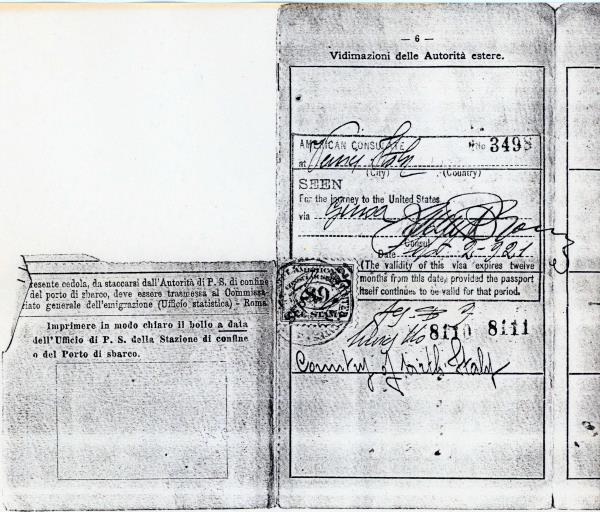 — 6 —
Vidimazioni delle Autorità estere.
AMERICAN CONSULATE No 3498
at Venice Italy
(City) (Country)
SEEN
For the journey to the United States
via Genoa
Consul
Date Sept 2-921
(The validity of this visa expires twelve
months from this date, provided the passport
itself continues to be valid for that period.
8110 8111
Country of birth Italy
resente cedola, da staccarsi dall'Autorità di P. S. di confine
del porto di sbarco, deve essere trasmessa al Commissa-
riato generale dell'emigrazione (Ufficio statistica) - Roma
Imprimere in modo chiaro il bollo a data
dell'Ufficio di P. S. della Stazione di confine
o del Porto di sbarco.